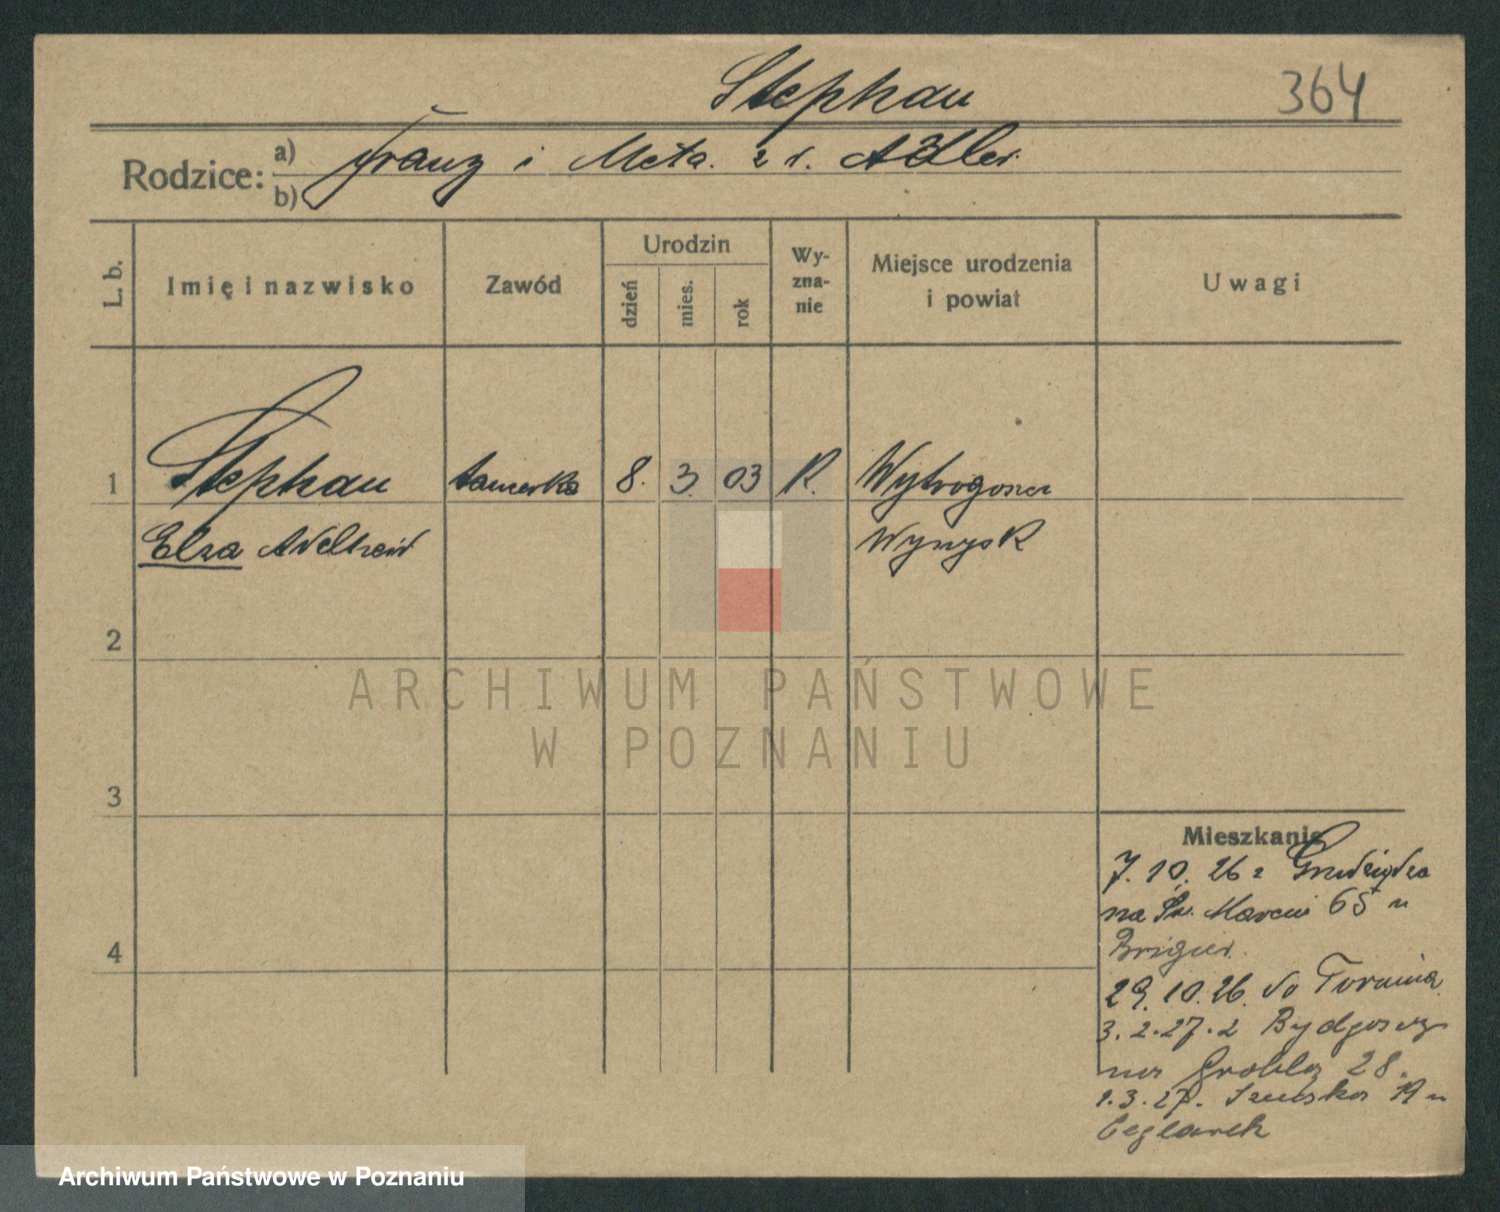 Stephan
364
Rodzice: a) Franz i Meta z d. Adler
b)
L. b.
Imię i nazwisko
Zawód
Urodzin
dzień
mies.
rok
Wy-
zna-
nie
Miejsce urodzenia
i powiat
Uwagi
1 Stephan tancerka 8. 3. 03 R.
Elza Adelheid
Wyrzysk
2
3
4
Mieszkanie
7. 10. 26 z Grudziądza
na Św. Marcin 65 u
29. 10. 26. do Torunia
3. 2. 27. z Bydgoszczy
na Groblę 28.
1. 3. 27. 19 u
Ceglarek
ARCHIWUM PAŃSTWOWE
W POZNANIU
Archiwum Państwowe w Poznaniu